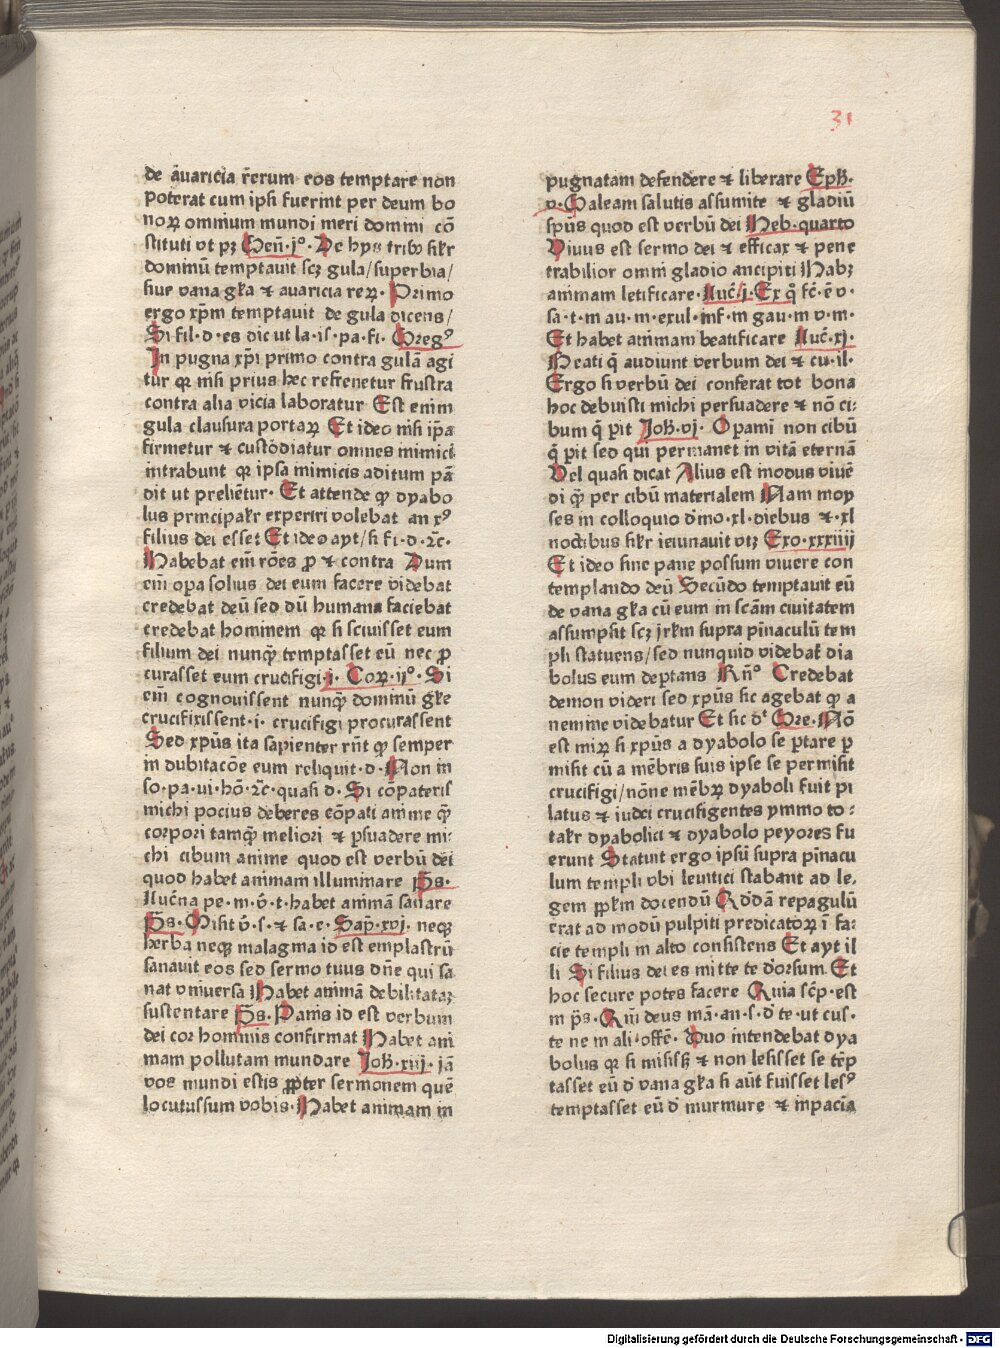 31
de āuaricia r̄erum eos temptare non
poterat cum ipsi fuerint per deum bo
noꝝ omnium mundi meri domini cō
stituti vt pꝫ Gen̄·j°· De hys tribꝫ sil̄r
dominū temptauit scꝫ gula/superbia/
siue vana gl̄ia ⁊ auaricia reꝝ· Primo
ergo xp̄m temptauit de gula dicens/
Si fil·d·es dic ut la·is·pa·fi· Gregꝰ
In pugna xp̄i primo contra gulā agi
tur qꝛ nisi prius hec refrenetur frustra
contra alia vicia laboratur Est enim
gula clausura portaꝝ Et ideo nisi ip̄a
firmetur ⁊ custodiatur omnes inimici
intrabunt qꝛ ipsa inimicis aditum pā
dit ut preliētur· Et attende ꝙ dyabo
lus principalr̄ experiri volebat an xꝰ
filius dei esset Et ideo ayt/si fi·d·⁊c̄·
Habebat em̄ rōes ꝓ ⁊ contra Dum
em̄ opa solius dei eum facere videbat
credebat deū sed dū humana faciebat
credebat hominem qꝛ si sciuisset eum
filium dei nunqꝫ temptasset eū nec ꝓ
curasset eum crucifigi·j· Coꝝ·ij°· Si
em̄ cognouissent nunqꝫ dominū gl̄ie
crucifixissent·i· crucifigi procurassent
Sed xpūs ita sapienter rn̄t ꝙ semper
in dubitacōe eum reliquit·d·Non in
so·pa·ui·hō·⁊c̄·quasi d· Si cōpateris
michi pocius deberes cōpati anime ꝙ̄
corpori tamqꝫ meliori ⁊ ꝑsuadere mi⸗
chi cibum anime quod est verbū dei
quod habet animam illuminare Ps̄·
Lucēna pe·m·v̄·t·habet animā sanare
Ps̄·Misit v̄·s·⁊ sa·e·Sap̄·xvj· neqꝫ
herba neqꝫ malagma id est emplastrū
sanauit eos sed sermo tuus dn̄e qui sa
nat vniuersa Habet animā debilitatā
sustentare Ps̄·Panis id est verbum
dei cor hominis confirmat Habet ani
mam pollutam mundare Joh̄·xiij·jā
vos mundi estis ꝓpter sermonem quē
locutus sum vobis·Habet animam in
pugnatam defendere ⁊ liberare Eph̄·
v·Galeam salutis assumite ⁊ gladiū
sp̄us quod est verbū dei Heb·quarto
Viuus est sermo dei ⁊ efficax ⁊ pene
trabilior omni gladio ancipiti Habꝫ
animam letificare·Luc̄·j·Ex q̊ fc̄·ē v·
sa·t·in au·m·exul·inf·in gau·in v·m·
Et habet animam beatificare Luc̄·xj·
Beati q̄ audiunt verbum dei ⁊ cu·il·
Ergo si verbū dei conferat tot bona
hoc debuisti michi persuadere ⁊ nō ci⸗
bum q̄ ꝑit Joh̄·vj· Opamī non cibū
q̄ ꝑit sed qui permanet in vitā eternā
Vel quasi dicat Alius est modus viuē
di ꝙ̄ per cibū materialem Nam moy
ses in colloquio dīno·xl·diebus ⁊·xl
noctibus sil̄r ieiunauit vtꝫ Exo·xxxiiij
Et ideo sine pane possum viuere con
templando deū Secūdo temptauit eū
de vana gl̄ia cū eum in scām ciuitatem
assumpsit scꝫ jrl̄m supra pīnaculū tem
pli statuens/sed nunquid videbat dia
bolus eum deptans Rn̄° Credebat
demon videri sed xpūs sic agebat ꝙ a
nemine videbatur Et sic d̄t Gre·Nō
est miꝝ si xpūs a dyabolo se ꝑtare ꝑ
misit cū a mēbris suis ipse se permisit
crucifigi/nōne mēbꝝ dyaboli fuit pi
latus ⁊ iudei crucifigentes ymmo to⸗
talr̄ dyabolici ⁊ dyabolo peyores fu
erunt Statuit ergo ipsū supra pinacu
lum templi vbi leuitici stabant ad le⸗
gem ꝓpl̄m docendū Qd̄dā repagulū
erat ad modū pulpiti predicatoꝝ ī fa⸗
cie templi in alto consistens Et ayt il
li Si filius dei es mitte te d̄orsum Et
hoc secure potes facere Quia sc̄p·est
in ps̄·Qm̄ deus mā·an·s·d̄ te·ut cus·
te ne in ali·offē· Duo intendebat dya
bolus qꝛ si misissꝫ ⁊ non lesisset se tēp
tasset eū d̄ vana gl̄ia si aūt fuisset lesꝰ
temptasset eū d̄ murmure ⁊ inpaciā
Digitalisierung gefördert durch die Deutsche Forschungsgemeinschaft - DFG